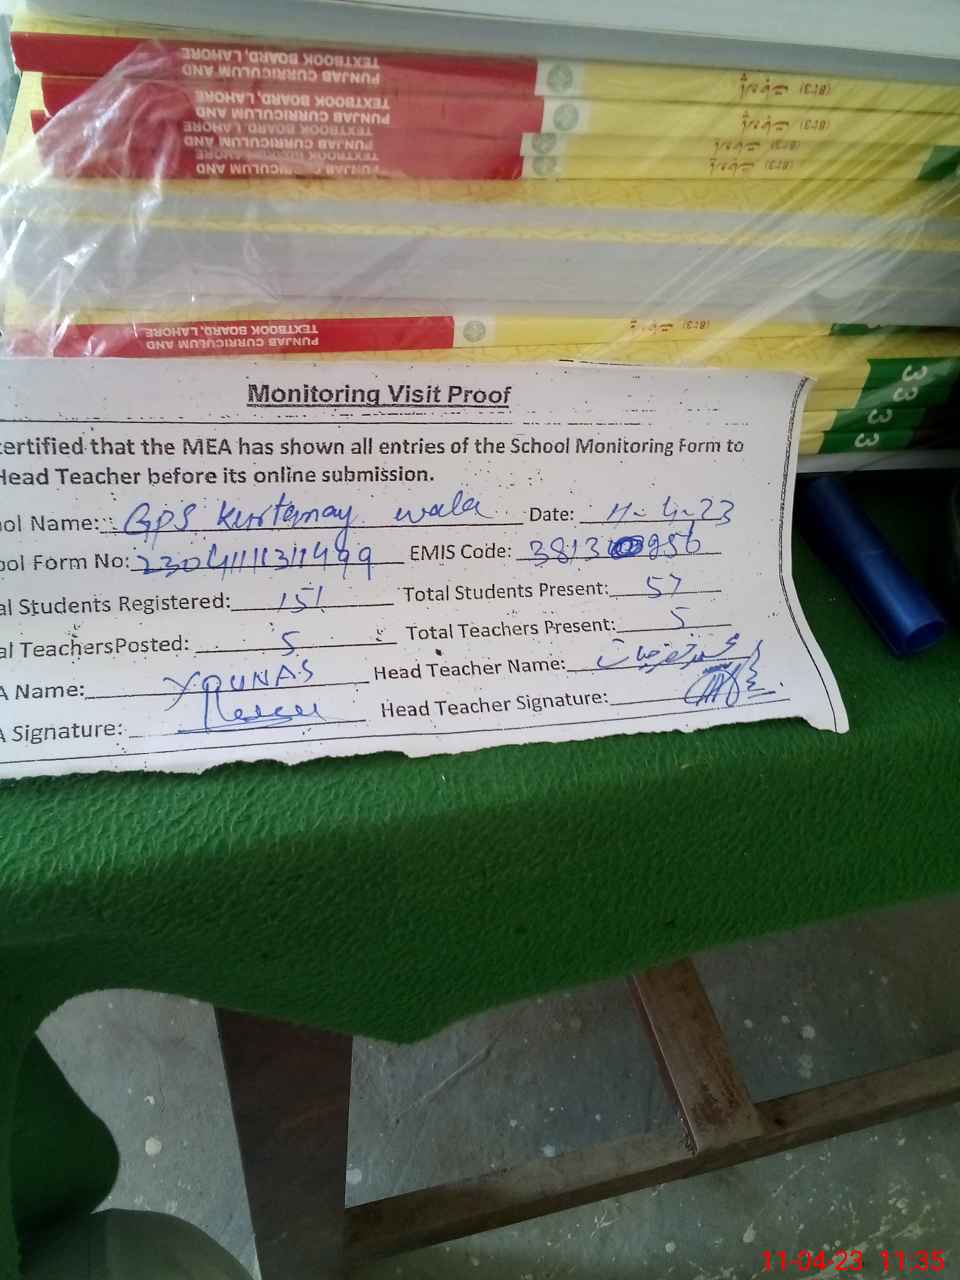 PUNJAB CURRICULUM AND
TEXTBOOK BOARD, LAHORE
PUNJAB CURRICULUM AND
TEXTBOOK BOARD, LAHORE
PUNJAB CURRICULUM AND
TEXTBOOK BOARD, LAHORE
PUNJAB CURRICULUM AND
PUNJAB CURRICULUM AND
TEXTBOOK BOARD, LAHORE
3
3
3
3
Monitoring Visit Proof
certified that the MEA has shown all entries of the School Monitoring Form to
Head Teacher before its online submission.
ool Name: GPS wala Date: 11-4-23
ool Form No: EMIS Code: 3813 956
al Students Registered: 151 Total Students Present: 57
al TeachersPosted: 5 Total Teachers Present: 5
A Name: YOUNAS Head Teacher Name:
A Signature: Head Teacher Signature:
11-04-23 11:35